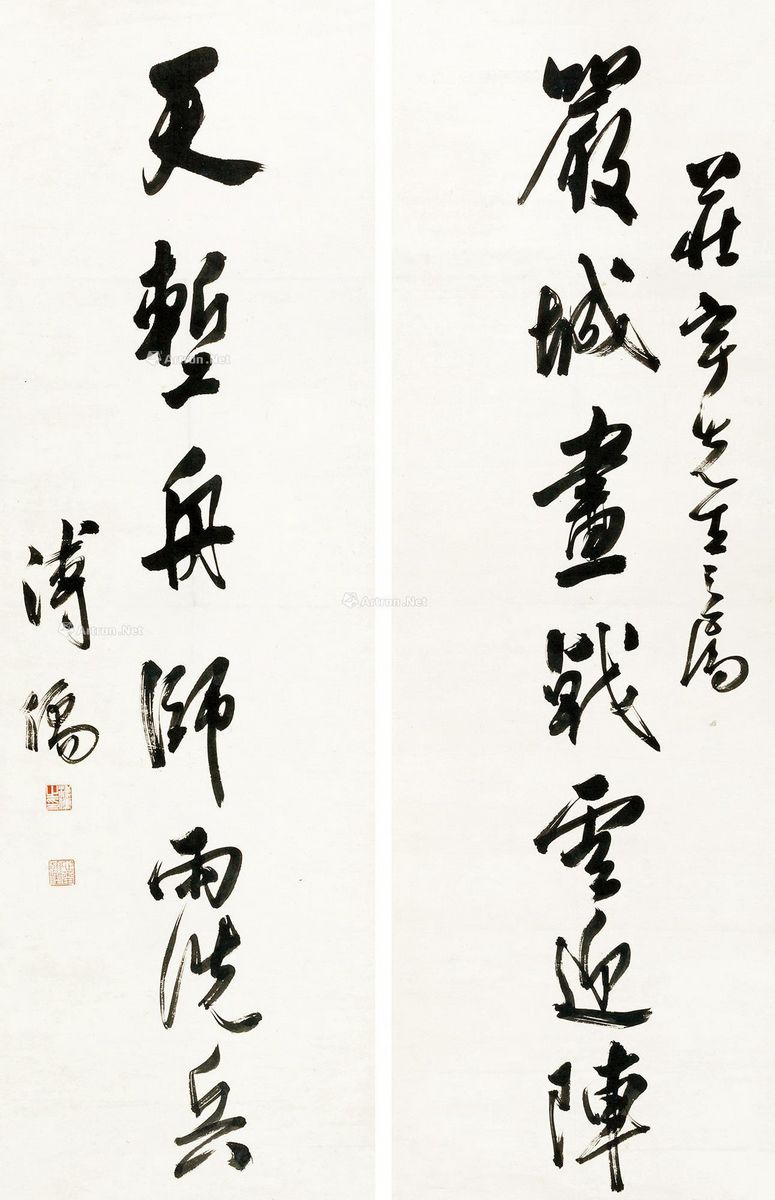 莊宇先生之屬
嚴城畫戰雲迎陣
天塹舟師雨洗兵
溥儒
Artron.Net
Artron.Net
Artron.Net